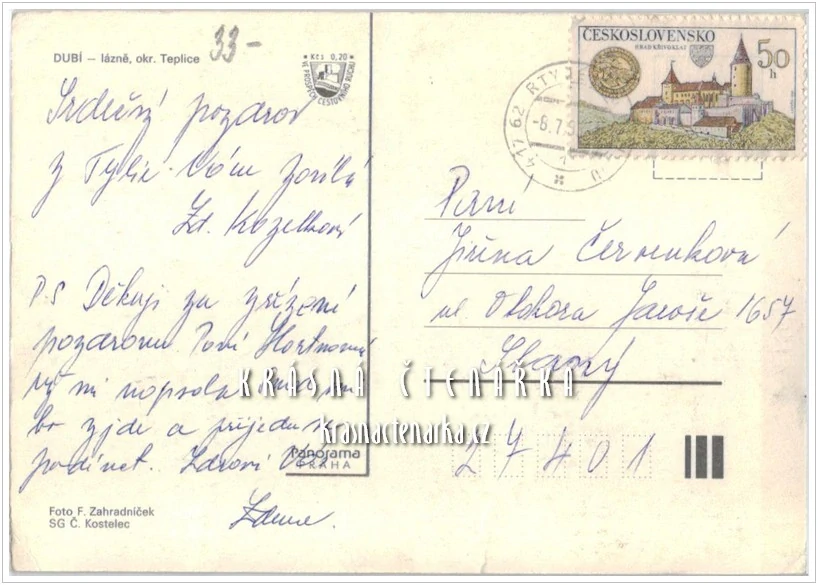 DUBÍ – lázně, okr. Teplice
33-
Kčs 0,20
VE PROSPĚCH CESTOVNÍHO RUCHU
Srdečný pozdrav
z Vám
Zd. Kozelková
PS Děkuji za zřízení
pozdravu Paní
mi napsala
zjde a přijedu
podívat. Zdraví Vás
Zdena.
Panorama
PRAHA
Foto F. Zahradníček
SG Č. Kostelec
ČESKOSLOVENSKO
HRAD KŘIVOKLÁT
50 h
417 62 RTYNĚ
-6.7.
Paní
Jiřina Červenková
ul Otakara Jaroše 1657
Slaný
27401
KRÁSNÁ ČTENÁRKA
krasnactenarka.cz